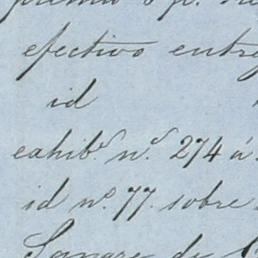 efectivo entre
id
exhib.^s n.^o 274 á
id n.^o 77 sobre
Sangre de